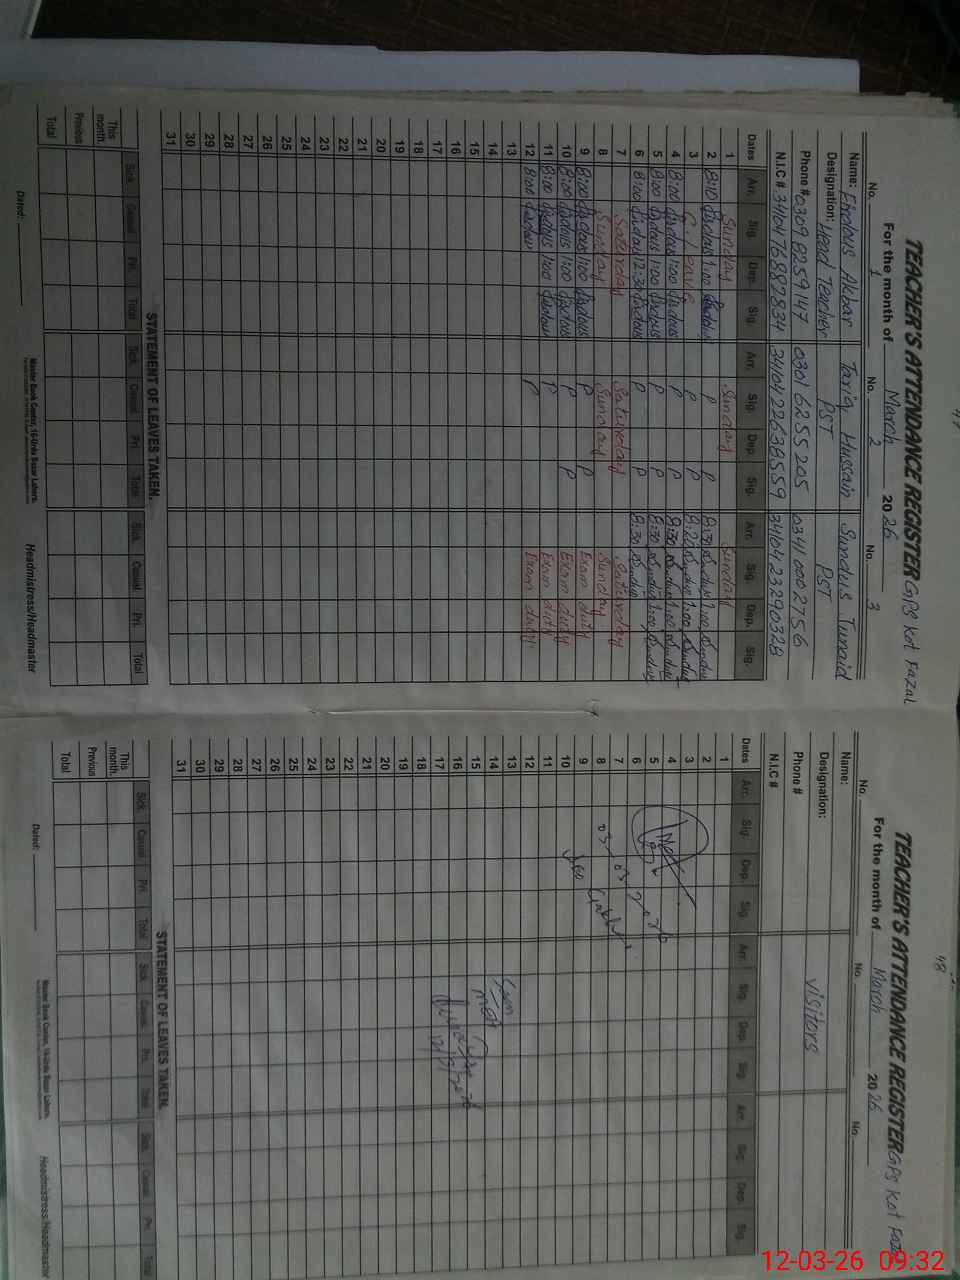 47
TEACHER'S ATTENDANCE REGISTER GPS Kot Fazal
For the month of March 2026
No. 1 No. 2 No. 3
Name: Firdous Akbar Tariq Hussain Sundus Junaid
Designation: Head Teacher PST PST
Phone # 0309 8259147 0301 6255205 0341 0002756
N.I.C # 34104 7688283 4 34104 2263855 9 34104 2329032 8
Dates Arr. Sig. Dep. Sig. Arr. Sig. Dep. Sig. Arr. Sig. Dep. Sig.
1 Sunday Sunday Sunday
2 8:10 Firdous 1:00 Firdous P P 8:30 Sundus 1:00 Sundus
3 C. Leave P P 8:20 Sundus 1:00 Sundus
4 8:00 Firdous 1:00 Firdous P P 8:30 Sundus 1:00 Sundus
5 8:00 Firdous 1:00 Firdous P P 8:30 Sundus 1:00 Sundus
6 8:00 Firdous 12:30 Firdous P P 8:30 Sundus
7 Saturday Saturday Saturday
8 Sunday Sunday Sunday
9 8:00 Firdous 1:00 Firdous P P Exam duty
10 8:00 Firdous 1:00 Firdous P P Exam duty
11 8:00 Firdous 1:00 Firdous P Exam duty
12 8:00 Firdous P Exam duty
13
14
15
16
17
18
19
20
21
22
23
24
25
26
27
28
29
30
31
STATEMENT OF LEAVES TAKEN.
Sick Casual Pri. Total Sick Casual Pri. Total Sick Casual Pri. Total
This month.
Previous
Total
Dated: Master Book Center, 16-Urdu Bazar Lahore. Headmistress/Headmaster
48
TEACHER'S ATTENDANCE REGISTER GPS Kot Fazal
For the month of March 2026
No. No. No.
Name:
Designation: visitors
Phone #
N.I.C #
Dates Arr. Sig. Dep. Sig. Arr. Sig. Dep. Sig. Arr. Sig. Dep. Sig.
1
2
3
4
5
6
7
8
9
10
11
12
13
14
15
16
17
18
19
20
21
22
23
24
25
26
27
28
29
30
31
03-03-2026
Seen
12/3/2026
STATEMENT OF LEAVES TAKEN.
Sick Casual Pri. Total Sick Casual Pri. Total Sick Casual Pri Total
This month.
Previous
Total
Dated: Master Book Center, 16-Urdu Bazar Lahore. Headmistress/Headmaster
12-03-26 09:32